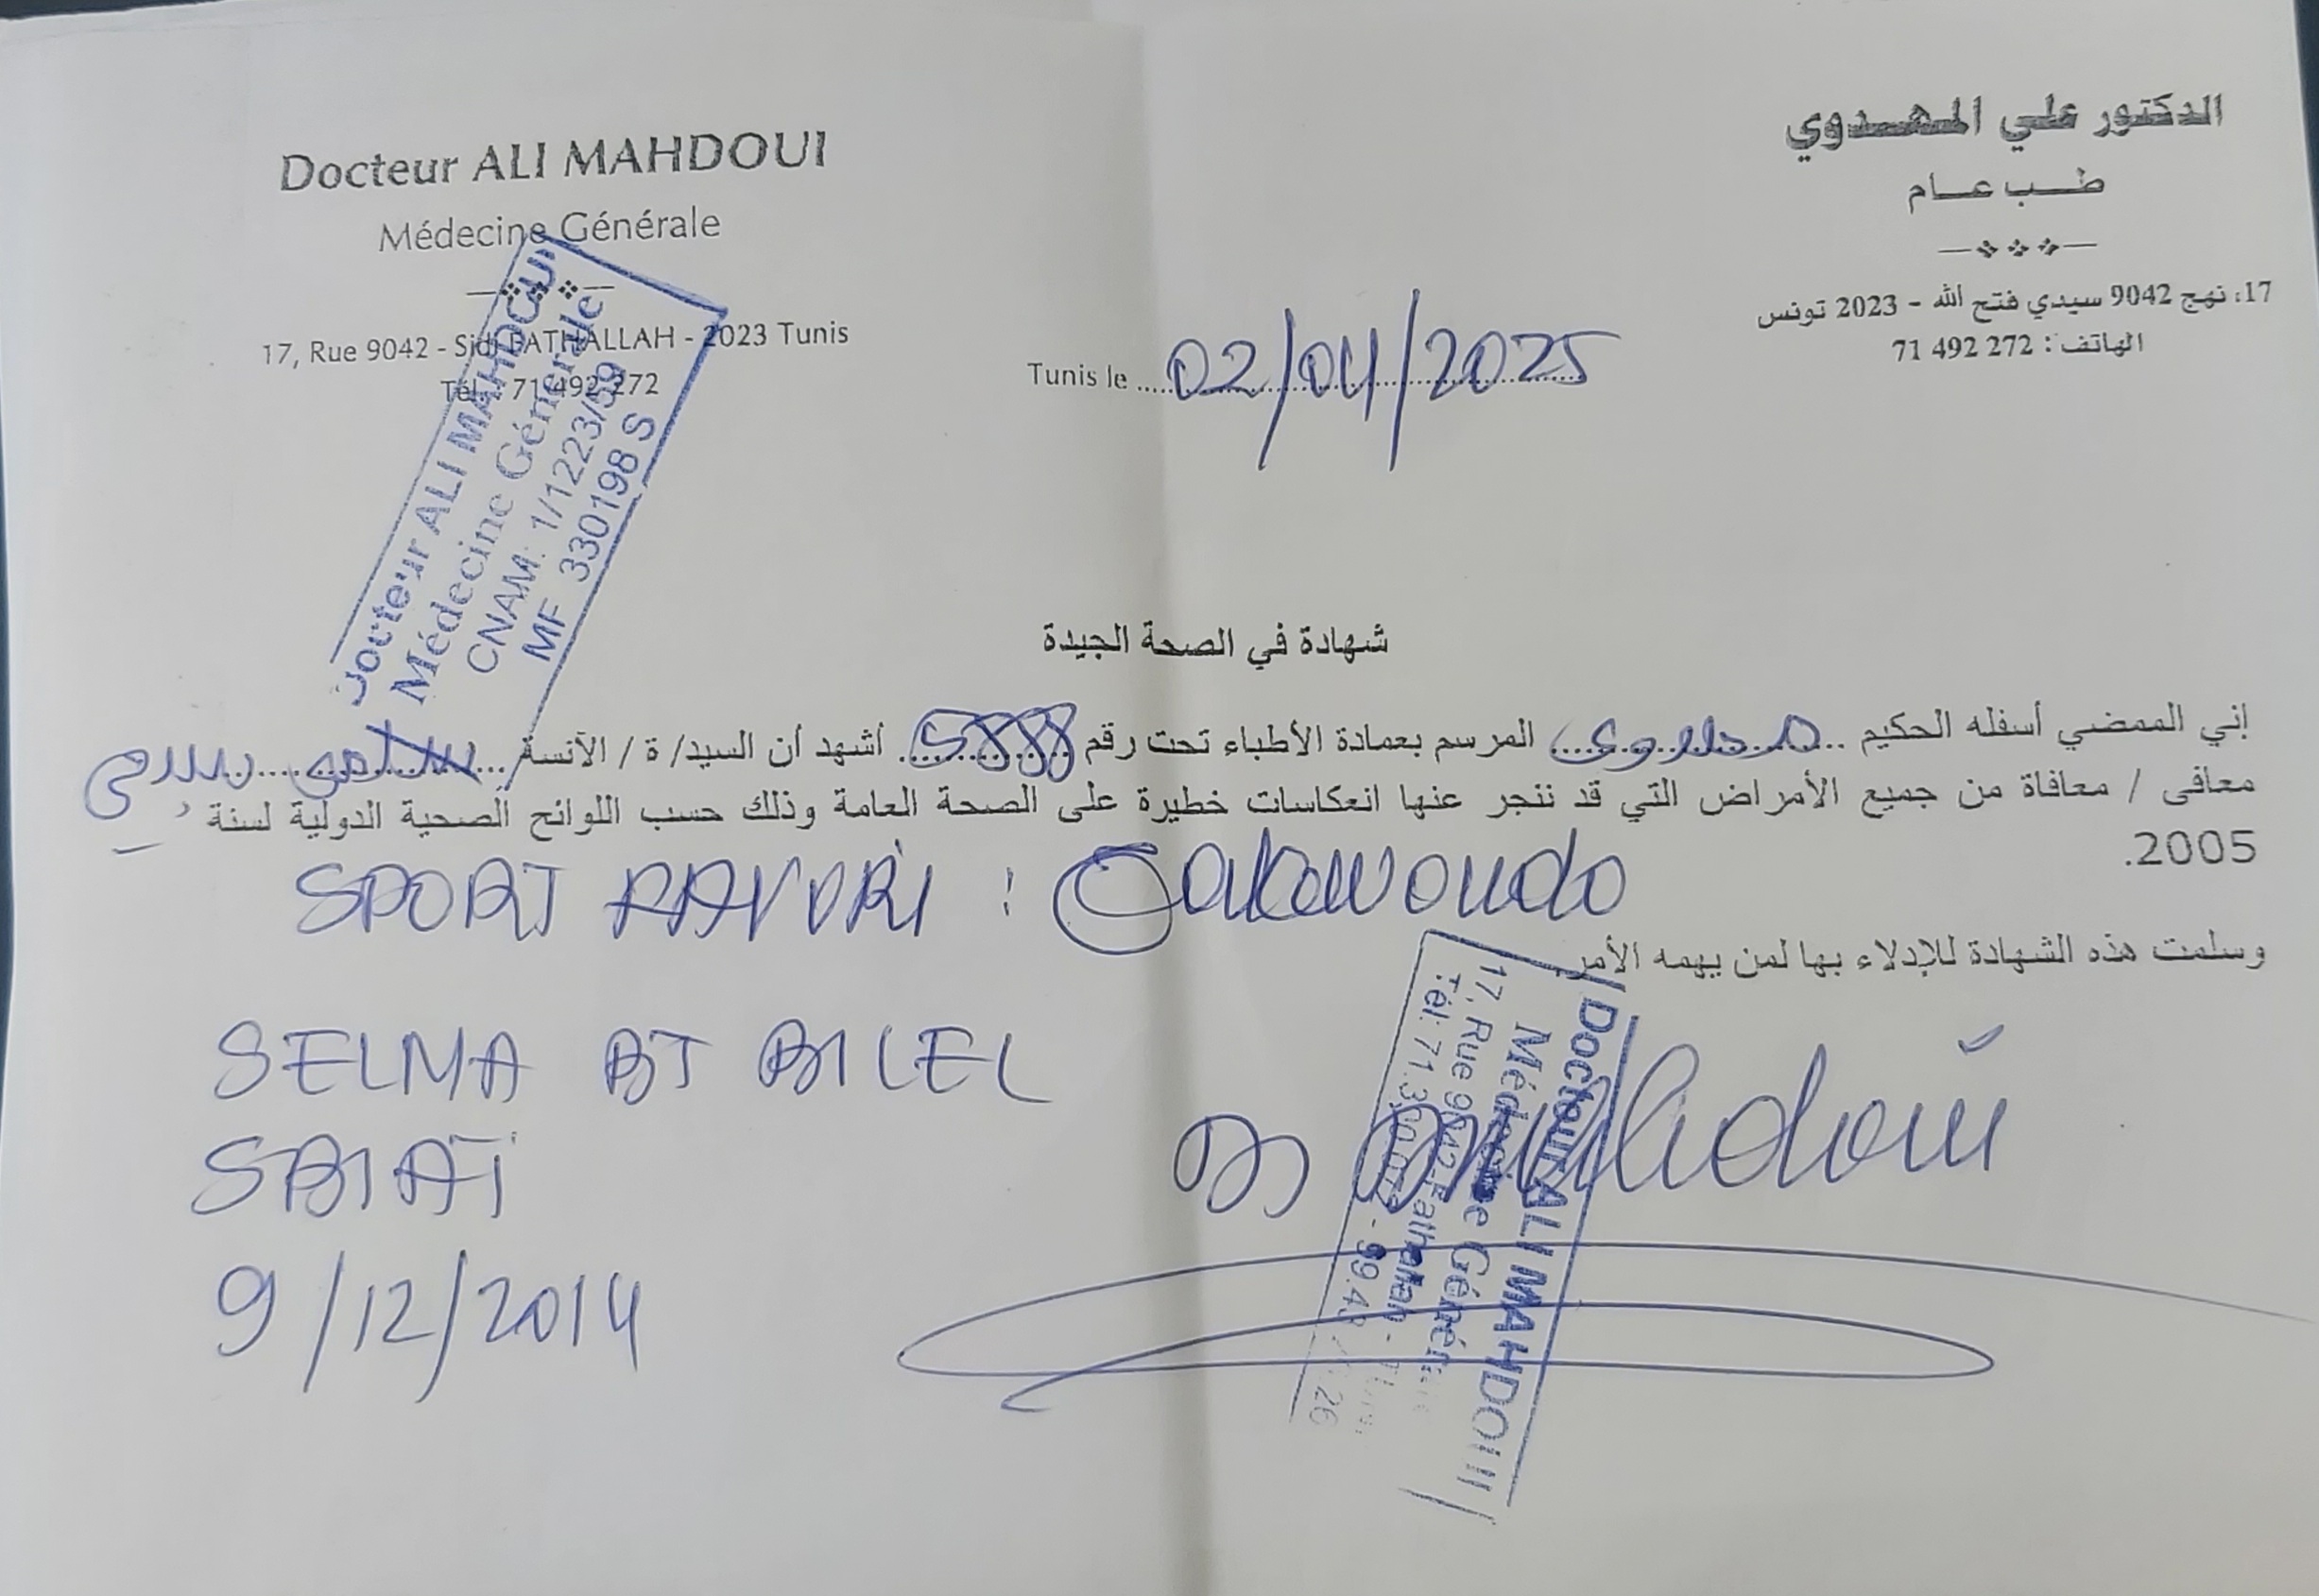 Docteur ALI MAHDOUI
Médecine Générale
17, Rue 9042 - Sidi FATHALLAH - 2023 Tunis
Tél.: 71 492 272
الدكتور علي المهدوي
طب عام
17، نهج 9042 سيدي فتح الله - 2023 تونس
الهاتف: 272 492 71
Tunis le 02/04/2025
Docteur ALI MAHDOUI
Médecine Générale
CNAM: 1/1223/59
MF 330198 S
شهادة في الصحة الجيدة
إني الممضي أسفله الحكيم المرسم بعمادة الأطباء تحت رقم أشهد أن السيد/ ة / الآنسة
معافى / معافاة من جميع الأمراض التي قد تنجر عنها انعكاسات خطيرة على الصحة العامة وذلك حسب اللوائح الصحية الدولية لسنة
2005.
SPORT :
وسلمت هذه الشهادة للإدلاء بها لمن يهمه الأمر
SELMA BT BILEL
SBIAI
9/12/2014
Docteur ALI MAHDOUI
Médecine Générale
17, Rue 9042 Fathallah -
Tél: 71.